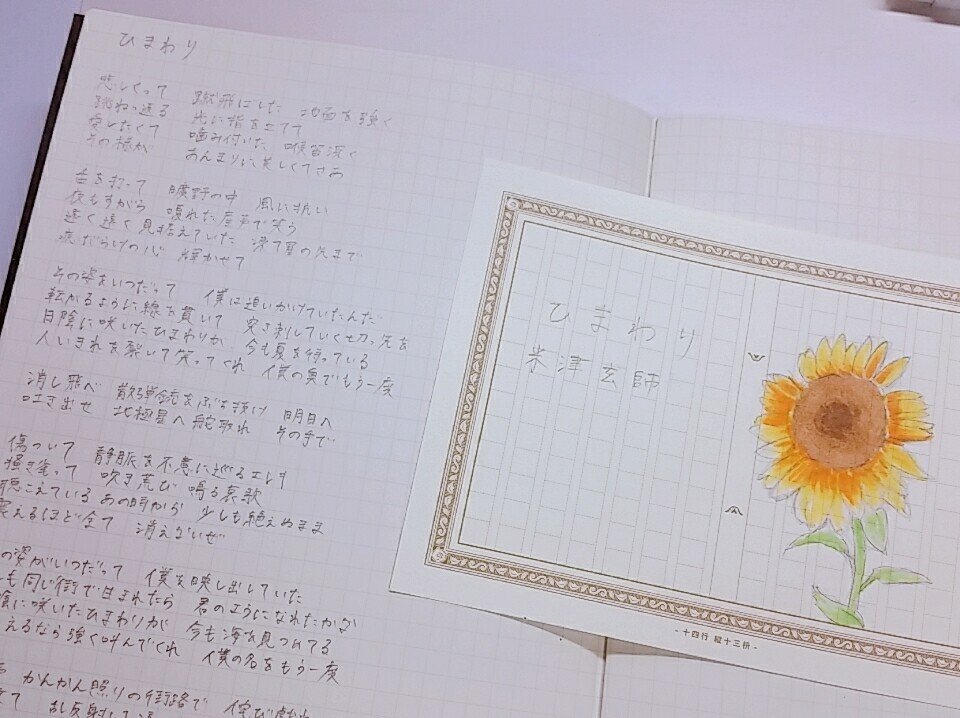 ひまわり
悲しくって 蹴飛ばした 地面を強く
跳ねっ返る 光に指を立てて
愛したくて 噛み付いた 喉笛深く
その様が あんまりに美しくてさあ
舌を打って 曠野の中 風に抗い
夜もすがら 嗄れた産声で笑う
遠く遠く 見据えていた 凍て雲の先まで
痣だらけの心 輝かせて
その姿をいつだって 僕は追いかけていたんだ
転がるように線を貫いて 突き刺していく切っ先を
日陰に咲いたひまわりが 今も夏を待っている
人いきれを裂いて笑ってくれ 僕の奥でもう一度
消し飛べ 散弾銃をぶち抜け 明日へ
吐き出せ 北極星へ舵取れ その手で
傷ついて 静脈を不意に巡るエレキ
掻き塗って 吹き荒び 鳴る哀歌
聴こえている あの時から 少しも絶えぬまま
震えるほど全て 消えないぜ
の姿がいつだって 僕を映し出していた
も同じ街で生まれたら 君のようになれたかな
陰に咲いたひまわりが 今も海を見つめてる
えるなら強く叫んでくれ 僕の名をもう一度
かんかん照りの街路で 侘び
て 乱反射して
ひまわり
米津玄師
-十四行 縦十三折-